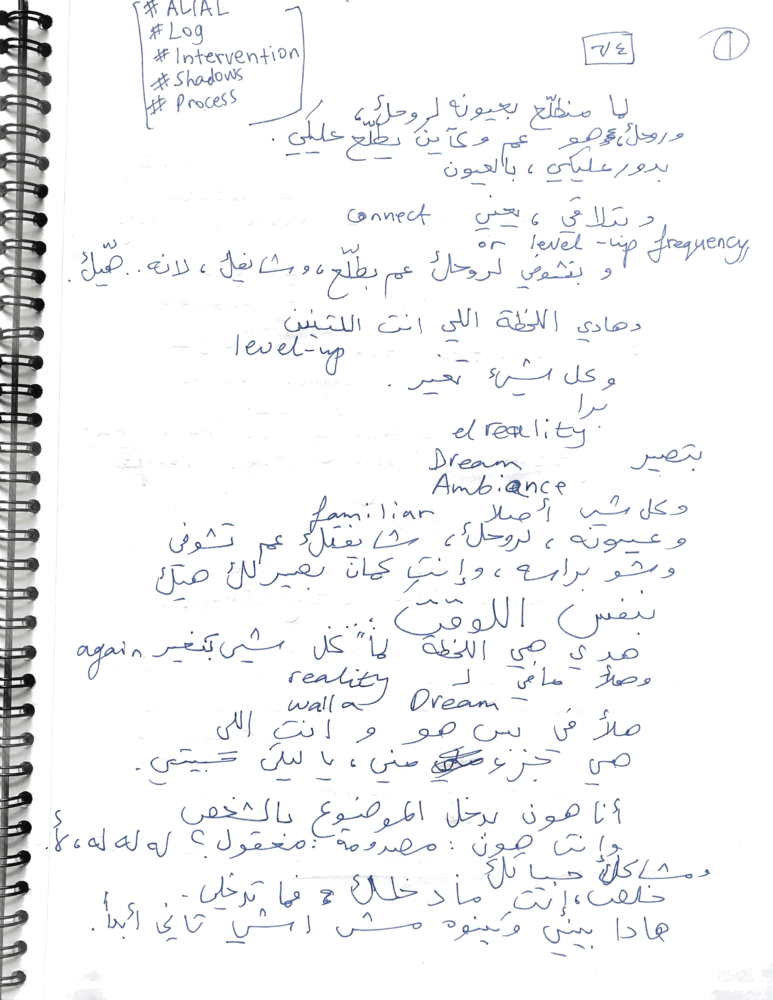 # ALIAL
# Log
# Intervention
# Shadows
# Process
٦/٤
1
لما منطلّع بعيونه لروحك،
وروحك، هو عم وعآين يطلّع عليكي.
بدور عليكي، بالعيون
و بتلاقي، يعني connect
or level-up frequency,
و بتشوفي لروحك عم بطّلّع، وشايفك، لانه.. هيّك.
وهادي اللحظة اللي انت اللتنين
level-up
وكل اشيء تغير.
برا
el reality
بتصير Dream
Ambiance
وكل شي أصلا familiar
وعيونه، لروحك، شايفتك عم تشوفي
وشو براسه، وإنتِ كمان بصير لك هيك
بنفس اللوقت....
هدي هي اللحظة لما كل شي بتغير again
وهلأ مافي لـ reality
walla Dream
هلأ في بس هو و انت اللي
هي جزء مني، يا ليلى حبيبتي.
أنا هون بدخل الموضوع بالشخص
وانت هون: مصدومة: معقول؟ له له له، لأ.
ومشاكلك حساباتك
خلص، إنت ما دخلك، فما تدخلي.
هادا بيني وبينوه مش اشي تاني أبداً.